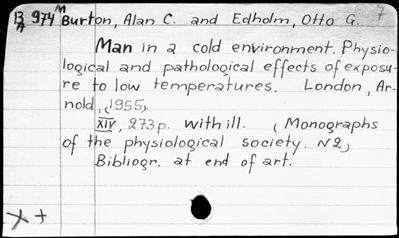 13 974 M Burton, Alan C. and Edholm, Otto G.
A
Man in a cold environment. Physio-
logical and pathological effects of exposu-
re to low temperatures. London, Ar-
nold, (1955).
XIV, 273 p. with ill. (Monographs
of the physiological society. N2)
Bibliogr. at end of art.